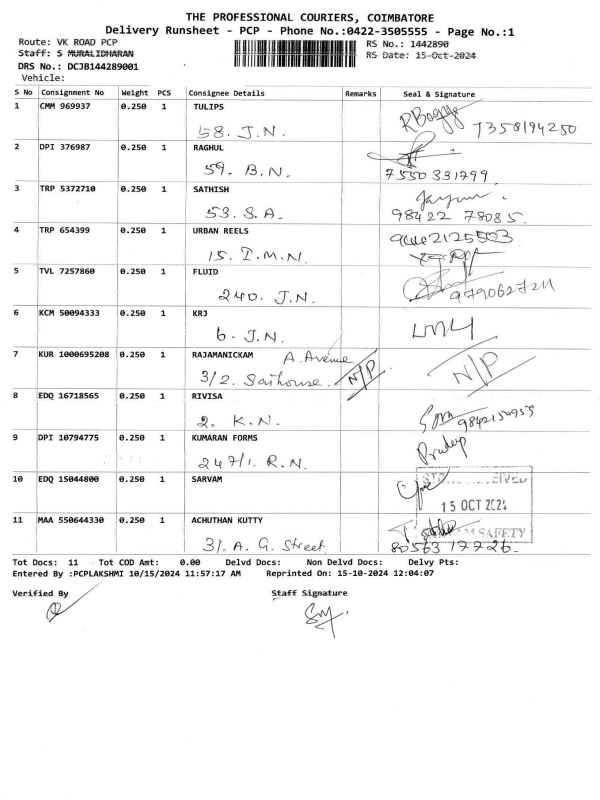 THE PROFESSIONAL COURIERS, COIMBATORE
Delivery Runsheet - PCP - Phone No.:0422-3505555 - Page No.:1
Route: VK ROAD PCP
RS No.: 1442890
Staff: S MURALIDHARAN
RS Date: 15-Oct-2024
DRS No.: DCJB144289001
Vehicle:
S No Consignment No Weight PCS Consignee Details Remarks Seal & Signature
1 CMM 969937 0.250 1 TULIPS
58. J.N. 7358194250
2 DPI 376987 0.250 1 RAGHUL
59. B.N. 7550331799
3 TRP 5372710 0.250 1 SATHISH
53. S.A. 98422 78085
4 TRP 654399 0.250 1 URBAN REELS
15. I.M.N.
5 TVL 7257860 0.250 1 FLUID
240. J.N.
6 KCM 50094333 0.250 1 KRJ
6. J.N.
7 KUR 1000695208 0.250 1 RAJAMANICKAM A. Avenue
3/2. Saihouse. N/P N/P
8 EDQ 16718565 0.250 1 RIVISA
2. K.N. 9842150953
9 DPI 10794775 0.250 1 KUMARAN FORMS Pradeep
247/1. R.N.
10 EDQ 15044800 0.250 1 SARVAM
15 OCT 2024
11 MAA 550644330 0.250 1 ACHUTHAN KUTTY SAFETY
31. A. G. Street 80563 17726.
Tot Docs: 11 Tot COD Amt: 0.00 Delvd Docs: Non Delvd Docs: Delvy Pts:
Entered By :PCPLAKSHMI 10/15/2024 11:57:17 AM Reprinted On: 15-10-2024 12:04:07
Verified By Staff Signature